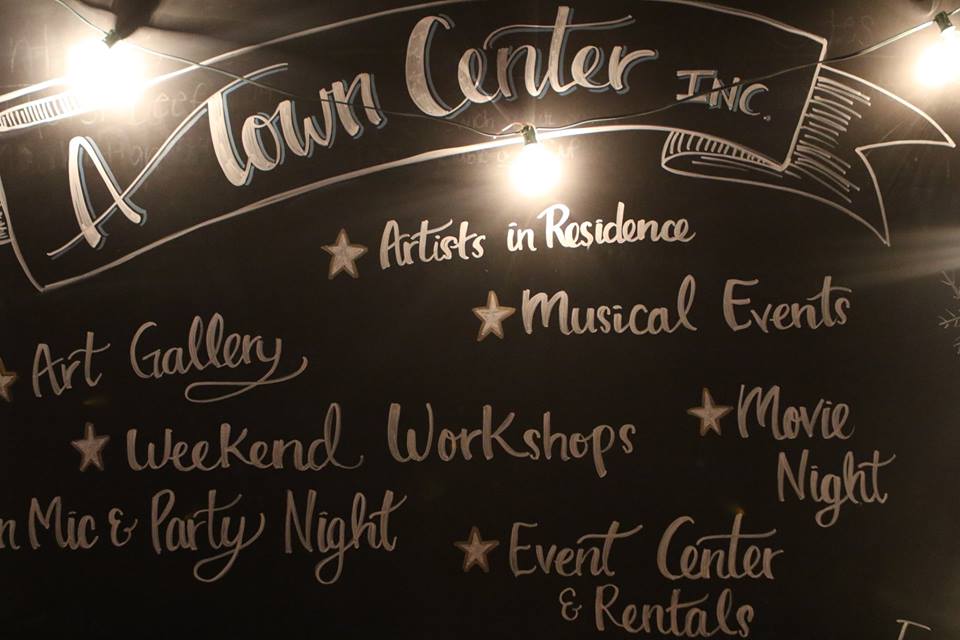 A Town Center INC.
Artists in Residence
Musical Events
Art Gallery
Weekend Workshops
Movie
Night
n Mic & Party Night
Event Center
& Rentals